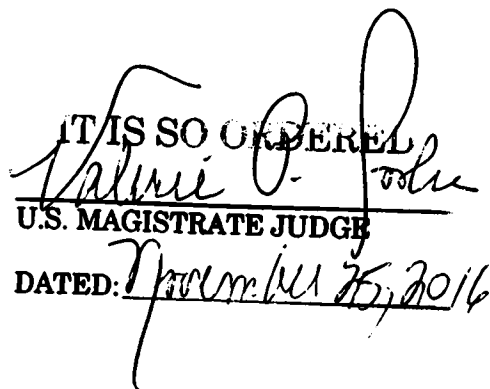 IT IS SO ORDERED
Valerie P. Cooke
U.S. MAGISTRATE JUDGE
DATED: November 25, 2016